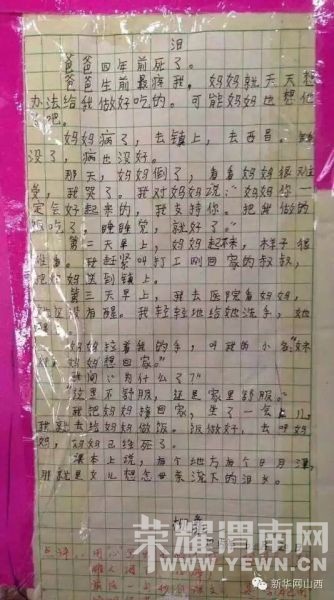 泪
爸爸四年前死了。
爸爸生前最疼我。妈妈就天天想
办法给我做好吃的。可能妈妈也想他
了吧。
妈妈病了，去镇上，去西昌。
没了，病也没好。
那天，妈妈倒了，看看妈妈很
受，我哭了。我对妈妈说：“妈妈你一
定会好起来的，我支持你。把我做的
饭吃了，睡睡觉，就好了。”
第二天早上，妈妈起不来，样子很
难看。我赶紧叫打工刚回家的叔叔，
把妈妈送到镇上。
第三天早上，我去医院看妈妈，
她还没有醒。我轻轻地给她洗手，她
妈妈拉着我的手，叫我的小名：
妈妈想回家。”
我问：“为什么了？”
“这里不舒服，还是家里舒服。”
我把妈妈接回家，坐了一会儿，
我就去给妈妈做饭。饭做好，去叫妈
妈，妈妈已经死了。
课本上说，有个地方有个日月潭，
那就是女儿想念母亲流下的泪水。
荣耀渭南网
WWW.YEWN.CN
新华网山西